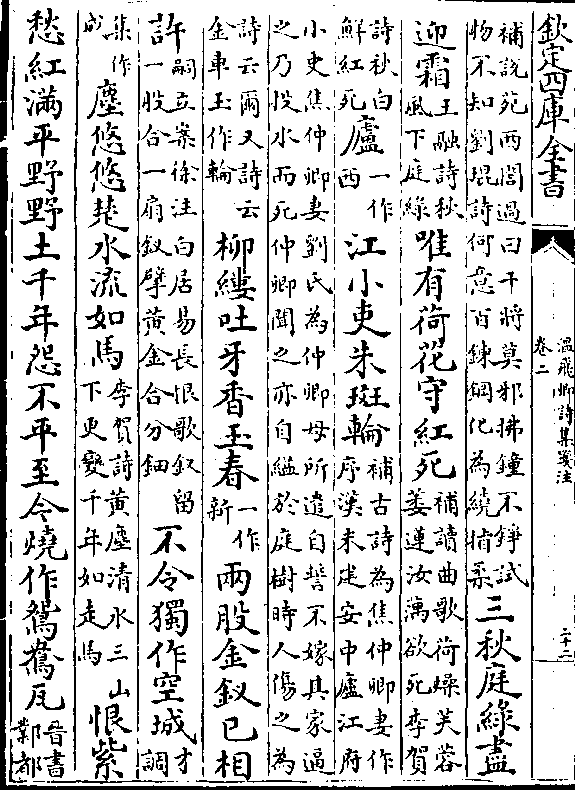 欽定四庫全書
温飛卿詩集箋注
卷二
補說苑西閭過曰干將莫邪拂鐘不錚試
物不知劉琨詩何意百鍊鋼化為繞指柔
三秋庭綠盡
迎霜
王融詩秋
風下庭綠
唯有荷花守紅死
補讀曲歌荷燥芙蓉
萎蓮汝藕欲死李賀
詩秋白
鮮紅死
廬
一作
西
江小吏朱斑輪
補古詩為焦仲卿妻作
序漢末建安中廬江府
小吏焦仲卿妻劉氏為仲卿母所遣自誓不嫁其家逼
之乃投水而死仲卿聞之亦自縊於庭樹時人傷之為
詩云爾又詩云
金車玉作輪
柳縷吐牙香玉春
一作
新
兩股金釵已相
許
嗣立案徐注白居易長恨歌釵留
一股合一扇釵擘黃金合分鈿
不令獨作空城
才
調
集作
成
塵悠悠楚水流如馬
李賀詩黃塵清水三山
下更變千年如走馬
恨紫
愁紅滿平野野土千年怨不平至今燒作鴛鴦瓦
晉書
鄴都